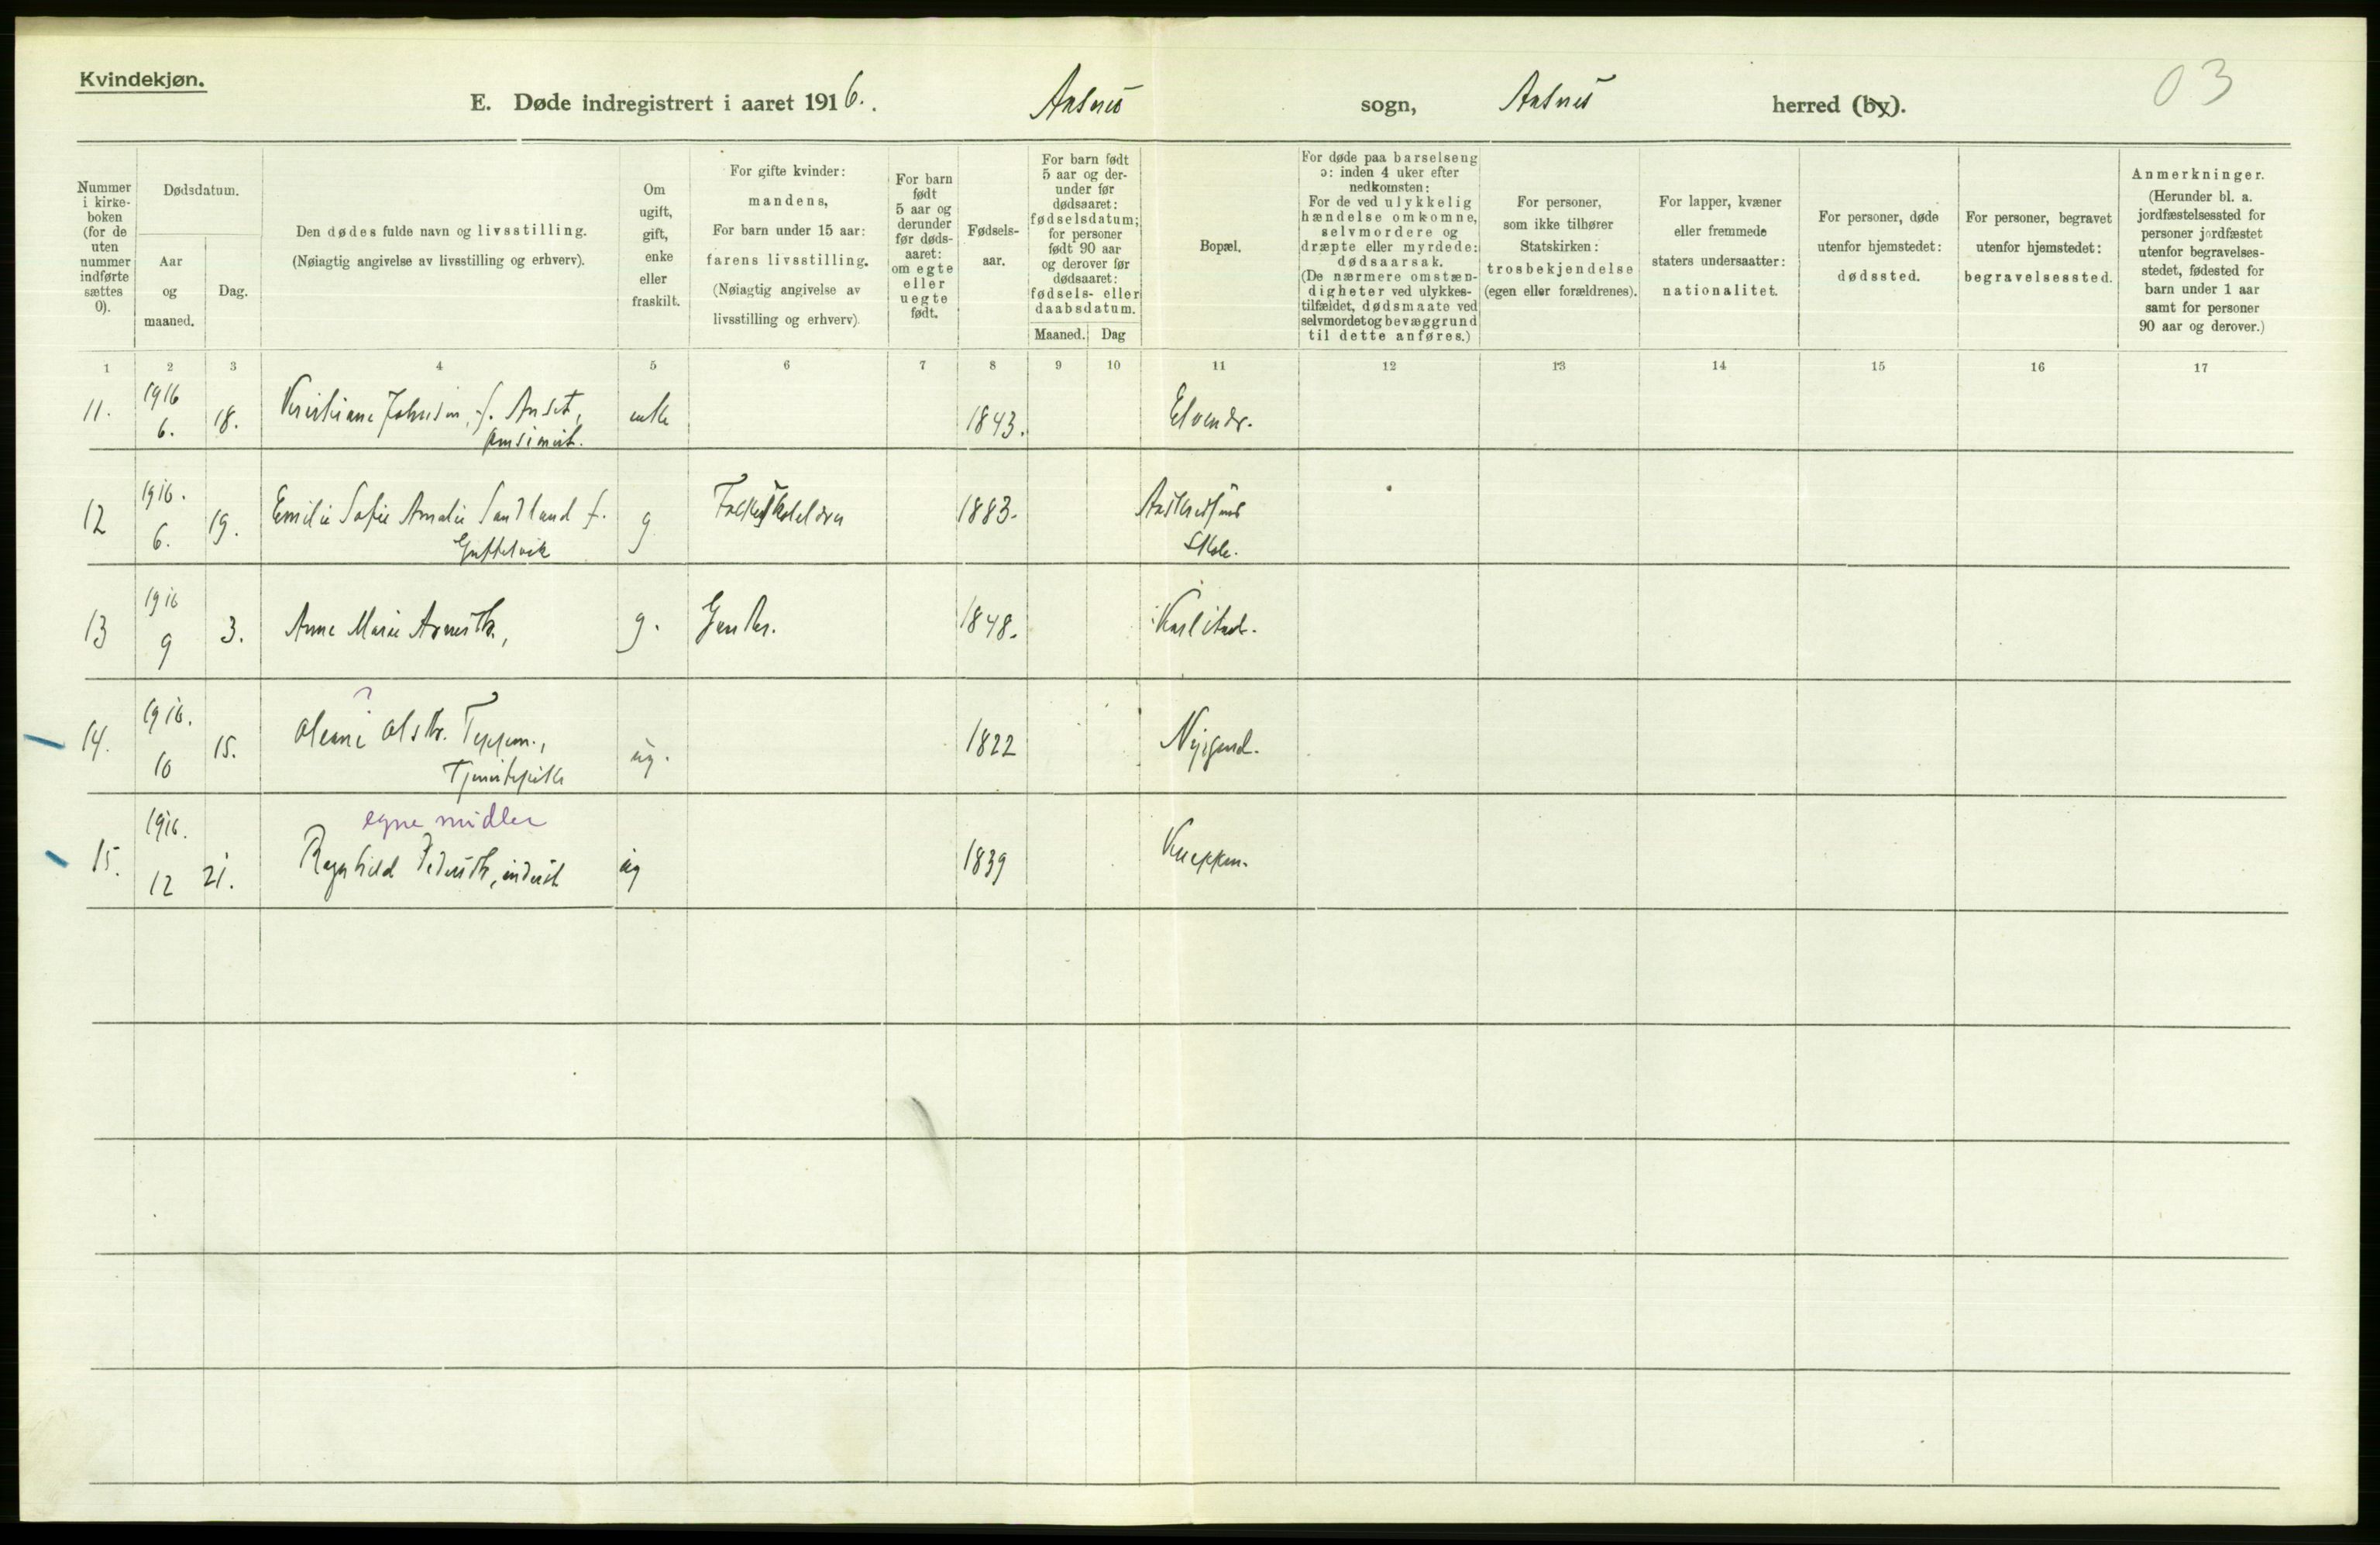 Kvindekjøn.
E. Døde indregistrert i aaret 1916. Aasnes sogn, Aasnes herred (by).
03
Nummer i kirkeboken (for de uten nummer indførte sættes 0).
Dødsdatum.
Aar og maaned.
Dag.
Den dødes fulde navn og livsstilling.
(Nøiagtig angivelse av livsstilling og erhverv).
Om ugift, gift, enke eller fraskilt.
For gifte kvinder: mandens,
For barn under 15 aar: farens livsstilling.
(Nøiagtig angivelse av livsstilling og erhverv)
For barn født 5 aar og derunder før dødsaaret: om egte eller uegte født.
Fødselsaar.
For barn født 5 aar og derunder før dødsaaret: fødselsdatum; for personer født 90 aar og derover før dødsaaret: fødsels- eller daabsdatum.
Maaned. Dag
Bopæl.
For døde paa barselseng ɔ: inden 4 uker efter nedkomsten:
For de ved ulykkelig hændelse omkomne, selvmordere og dræpte eller myrdede: dødsaarsak.
(De nærmere omstændigheter ved ulykkestilfældet, dødsmaate ved selvmordet og bevæggrund til dette anføres.)
For personer, som ikke tilhører Statskirken: trosbekjendelse (egen eller forældrenes).
For lapper, kvæner eller fremmede staters undersaatter: nationalitet.
For personer, døde utenfor hjemstedet: dødssted.
For personer, begravet utenfor hjemstedet: begravelsessted.
Anmerkninger.
(Herunder bl. a. jordfæstelsessted for personer jordfæstet utenfor begravelsesstedet, fødested for barn under 1 aar samt for personer 90 aar og derover.)
1 2 3 4 5 6 7 8 9 10 11 12 13 14 15 16 17
11. 1916 6. 18. Kristiane Johnsen, f. enke 1843.
12 1916. 6. 19. Emilie Sofie Amalie Sandland f. g 1883.
Skole.
13 1916 9 3. Anne Marie g. 1848. Karlstad.
?
14. 1916. 10 15. Oleane Olsdtr. ug. 1822
Tjenestepike
egne midler
15. 1916. 12 21. Ragnhild Pedersdtr, inderst ug 1839